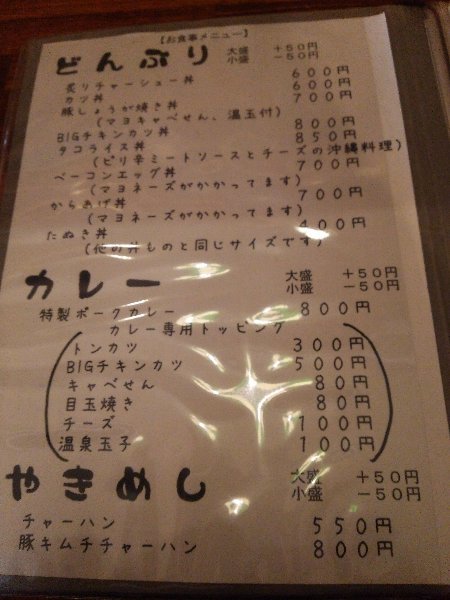 【お食事メニュー】
どんぶり 大盛 +50円
小盛 -50円
炙りチャーシュー丼 600円
カツ丼 600円
豚しょうが焼き丼 700円
(マヨキャベせん、温玉付)
BIGチキンカツ丼 800円
タコライス丼 850円
(ピリ辛ミートソースとチーズの沖縄料理)
ベーコンエッグ丼 700円
(マヨネーズがかかってます)
からあげ丼 700円
(マヨネーズがかかってます)
たぬき丼 400円
(他の丼ものと同じサイズです)
カレー 大盛 +50円
小盛 -50円
特製ポークカレー 800円
カレー専用トッピング
トンカツ 300円
BIGチキンカツ 500円
キャベせん 80円
目玉焼き 80円
チーズ 100円
温泉玉子 100円
やきめし 大盛 +50円
小盛 -50円
チャーハン 550円
豚キムチチャーハン 800円